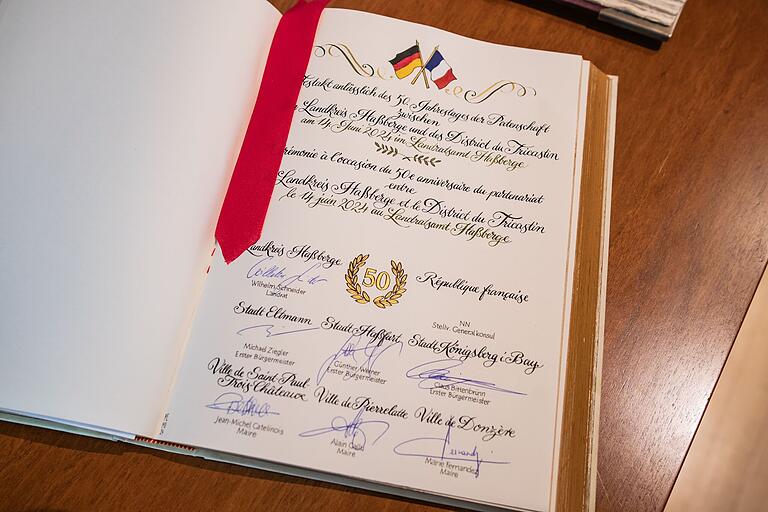 Festakt anlässlich des 50. Jahrestages der Patenschaft
zwischen
Landkreis Haßberge und des District du Tricastin
am 14. Juni 2024 im Landratsamt Haßberge
Cérémonie à l'occasion du 50e anniversaire du partenariat
entre
Landkreis Haßberge et le District du Tricastin
le 14 juin 2024 au Landratsamt Haßberge
Landkreis Haßberge
50
République française
Wilhelm Schneider
Landrat
NN
Stellv. Generalkonsul
Stadt Eltmann
Stadt Haßfurt
Stadt Königsberg i. Bay
Michael Ziegler
Erster Bürgermeister
Günther Werner
Erster Bürgermeister
Claus Bittenbrünn
Erster Bürgermeister
Ville de Saint-Paul
Trois Châteaux
Ville de Pierrelatte
Ville de Donzère
Jean-Michel Catelinois
Maire
Alain Gallu
Maire
Marie Fernandez
Maire